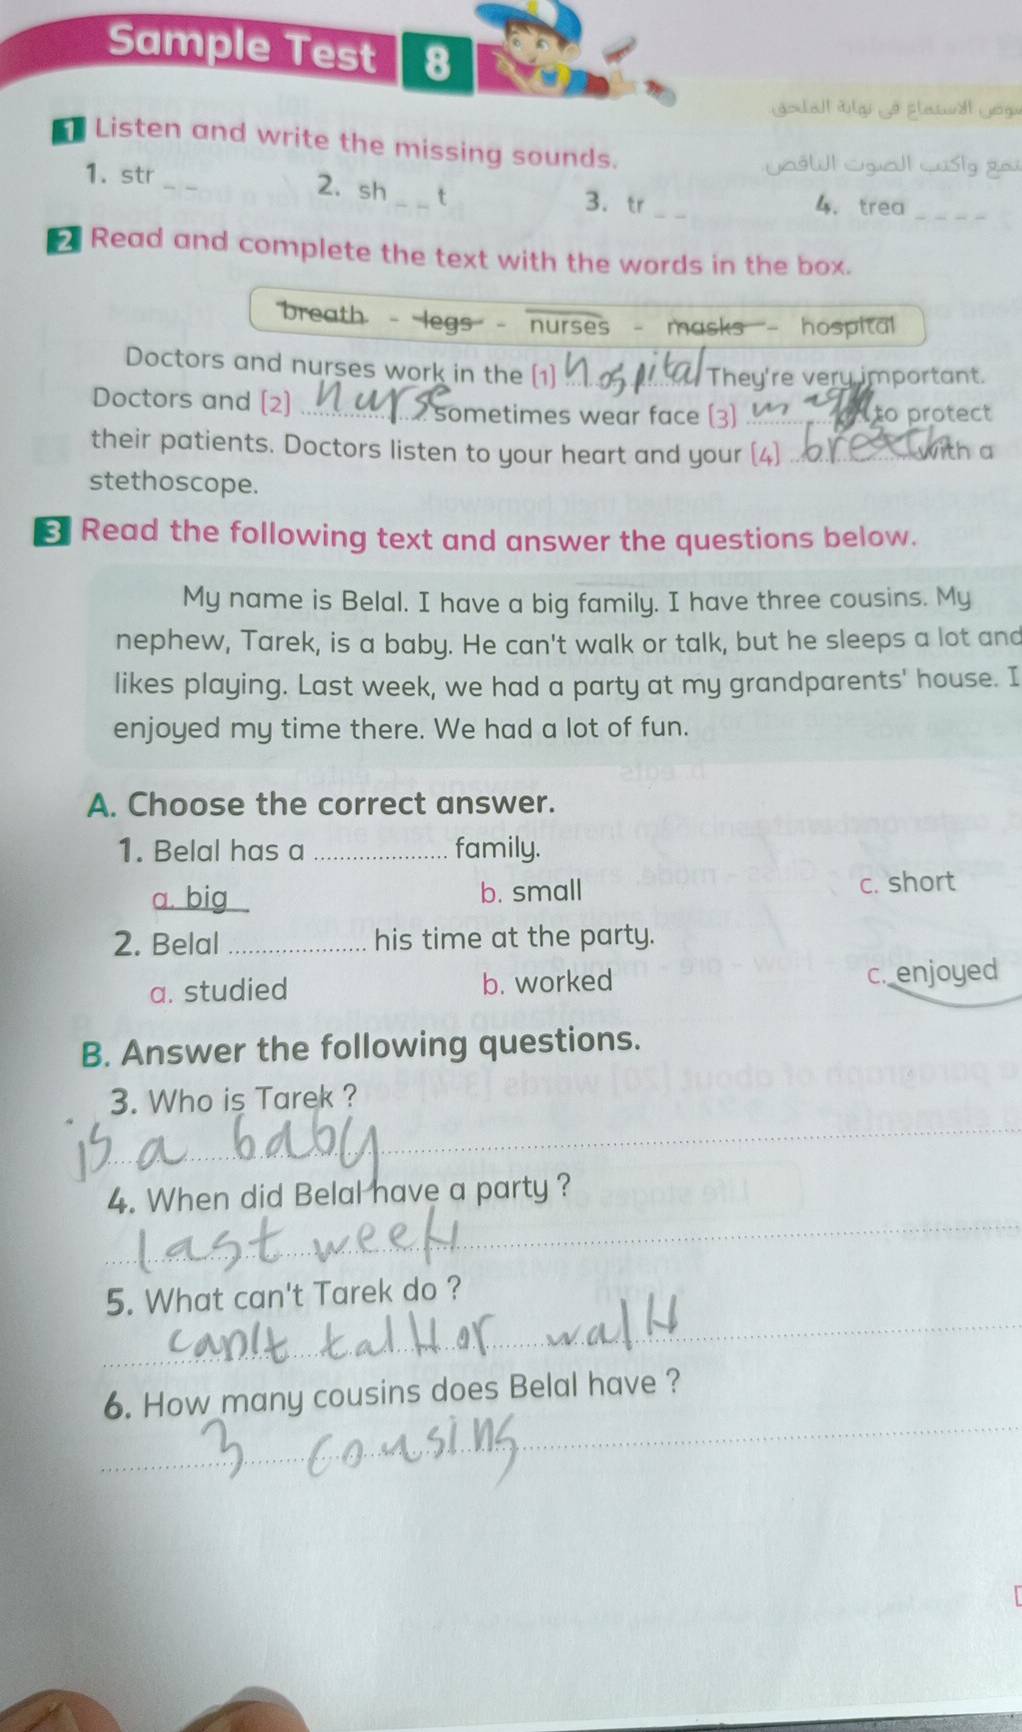 Sample Test 8
نصوص الاستماع في نهاية الملحق
1 Listen and write the missing sounds.
واكتب الصوت الناقص
1. str _ _ 2. sh _ _ t 3. tr _ _ 4. trea _ _ _ _
2 Read and complete the text with the words in the box.
breath - legs - nurses - masks - hospital
Doctors and nurses work in the (1) hospital They're very important.
Doctors and (2) nurse sometimes wear face (3) to protect
their patients. Doctors listen to your heart and your (4) breath with a
stethoscope.
3 Read the following text and answer the questions below.
My name is Belal. I have a big family. I have three cousins. My
nephew, Tarek, is a baby. He can't walk or talk, but he sleeps a lot and
likes playing. Last week, we had a party at my grandparents' house. I
enjoyed my time there. We had a lot of fun.
A. Choose the correct answer.
1. Belal has a ................ family.
a. big b. small c. short
2. Belal ................ his time at the party.
a. studied b. worked c. enjoyed
B. Answer the following questions.
3. Who is Tarek ?
is a baby
4. When did Belal have a party ?
last week
5. What can't Tarek do ?
can't talk or walk
6. How many cousins does Belal have ?
3 cousins